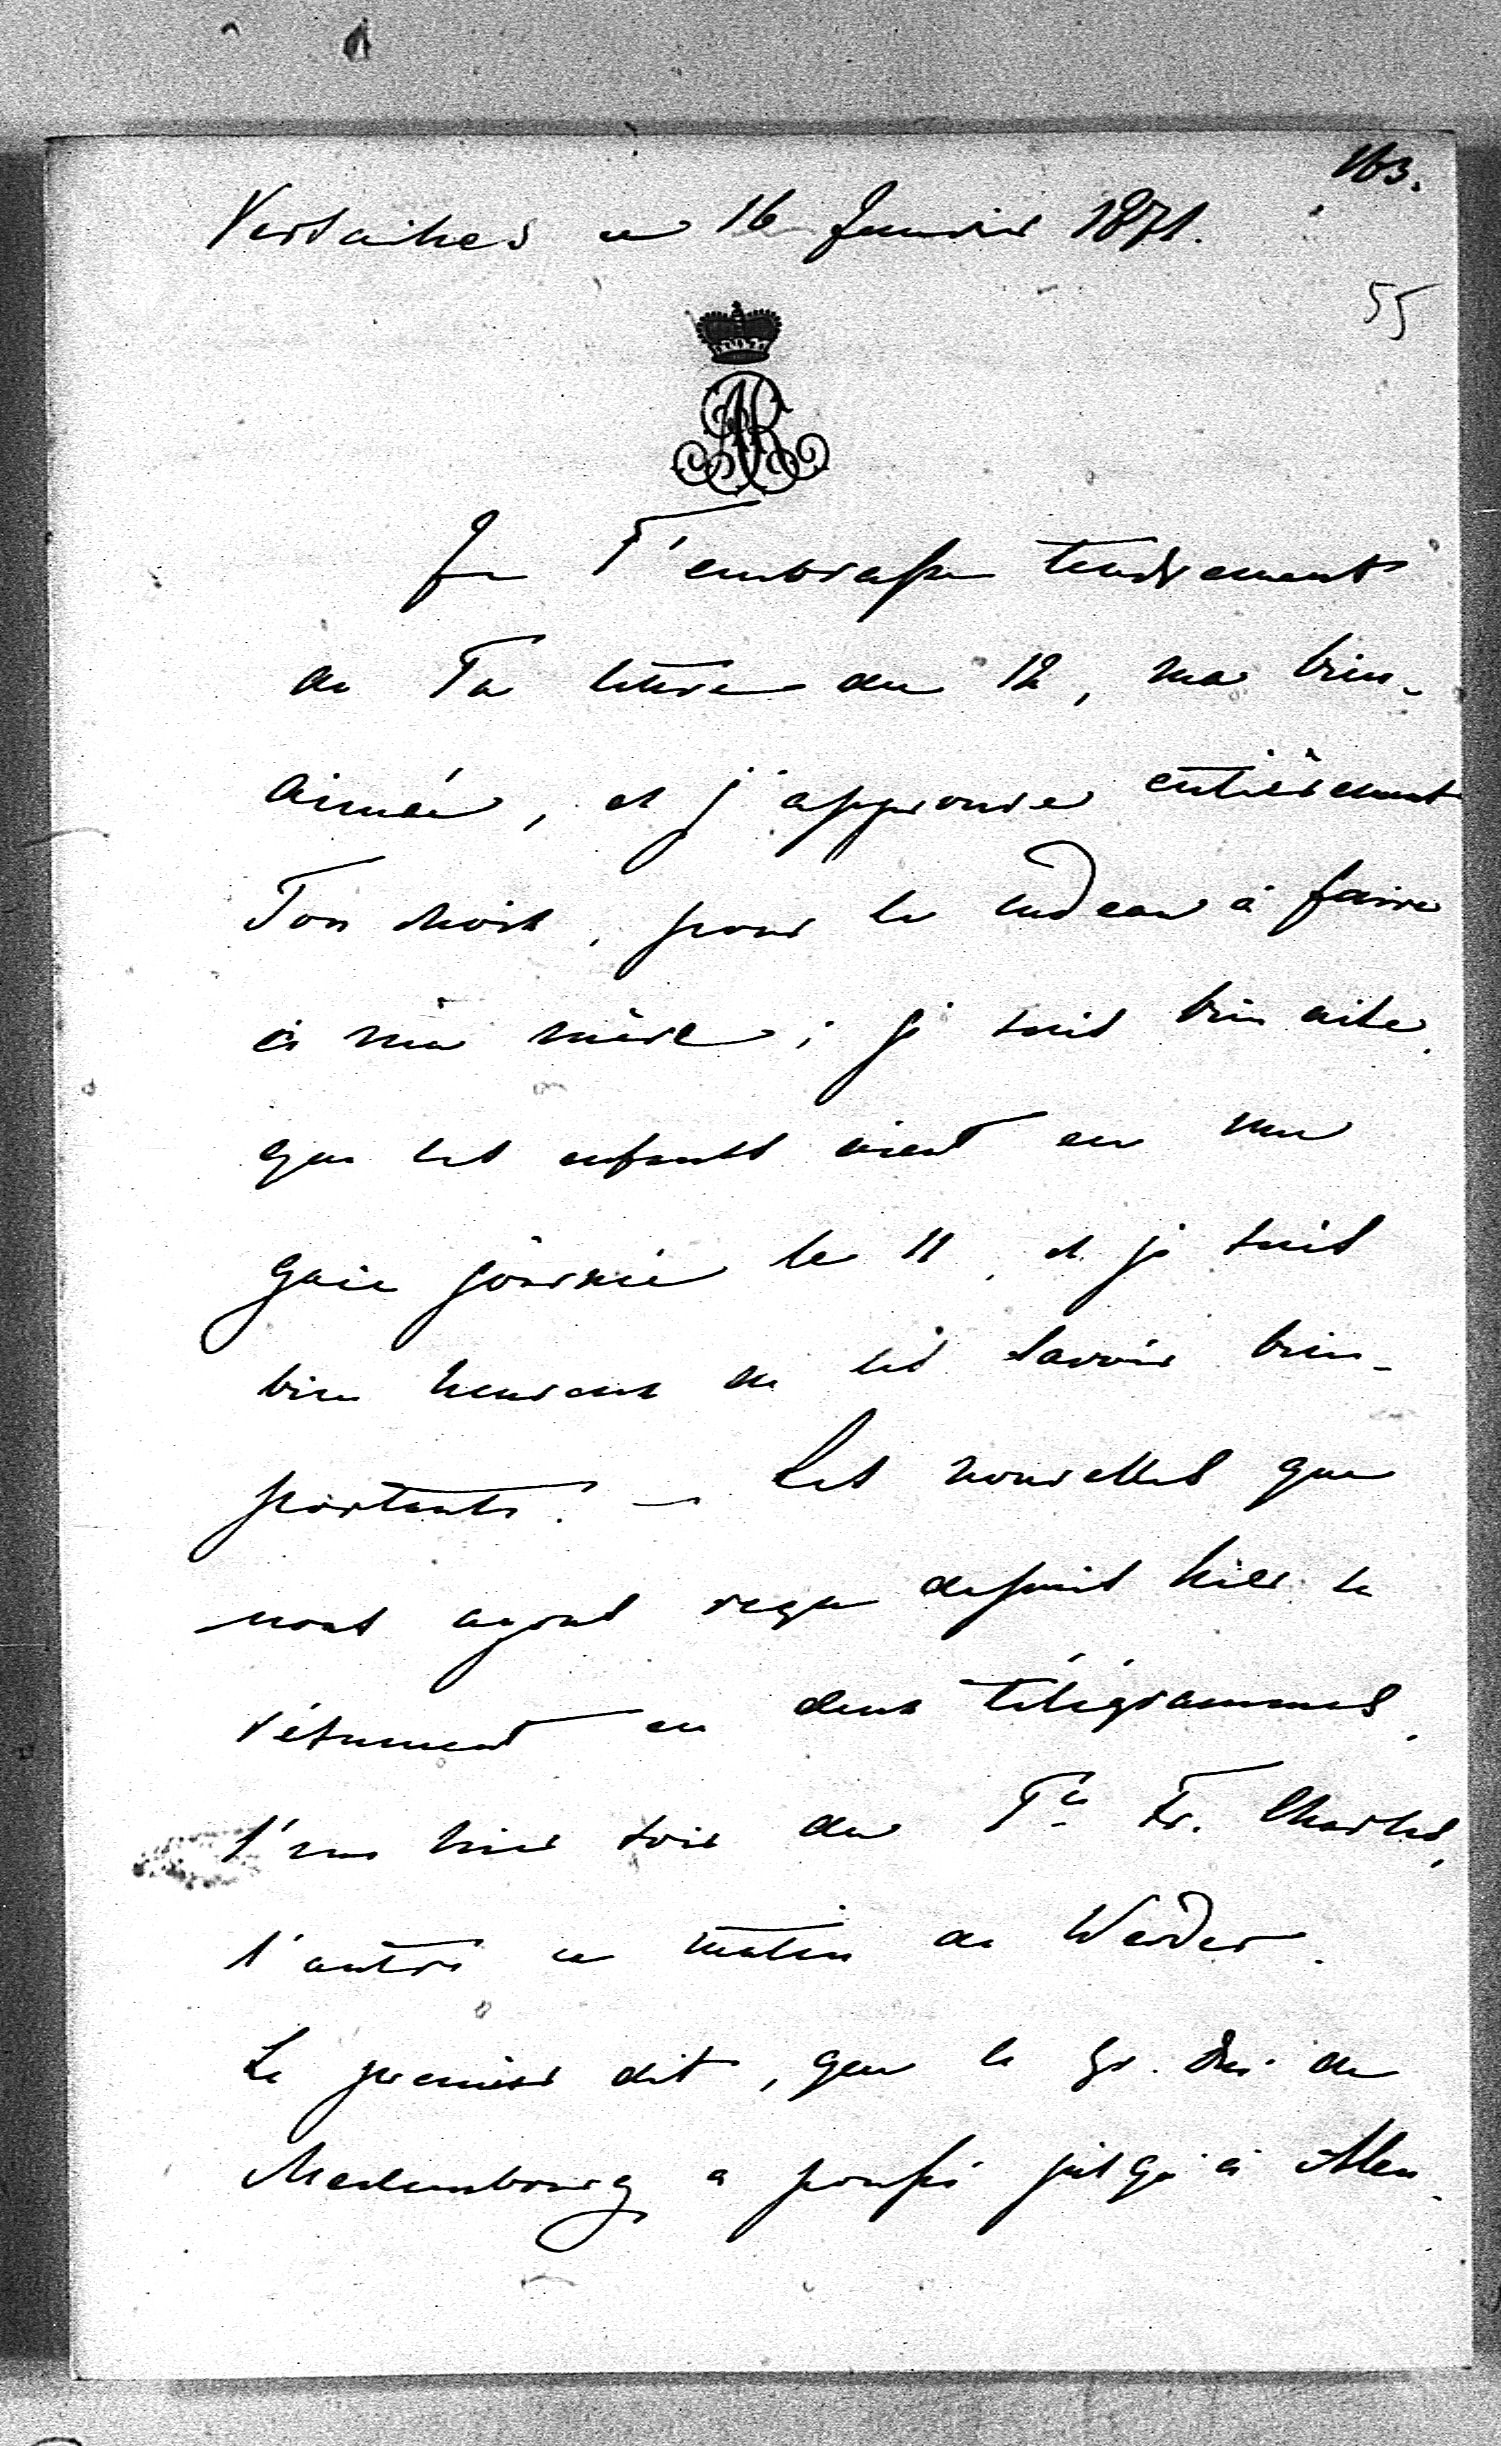 163.
Versailles ce 16 Janvier 1871.
55
AR
Je T'embrasse tendrement
de Ta lettre du 12, ma bien-
aimée, et j'approuve entièrement
Ton choix, pour le cadeau à faire
à ma mère; je suis bien aise
que les enfants aient eu une
gaie journée le 11, et je suis
bien heureux de les savoir bien-
portants. — Les nouvelles que
nous ayons reçu depuis hier se
résument en deux télégrammes,
l'un hier soir du Pce Fr. Charles,
l'autre ce matin de Werder.
Le premier dit, que le Gr. Duc de
Meclembourg a poussé jusqu'à Alen-